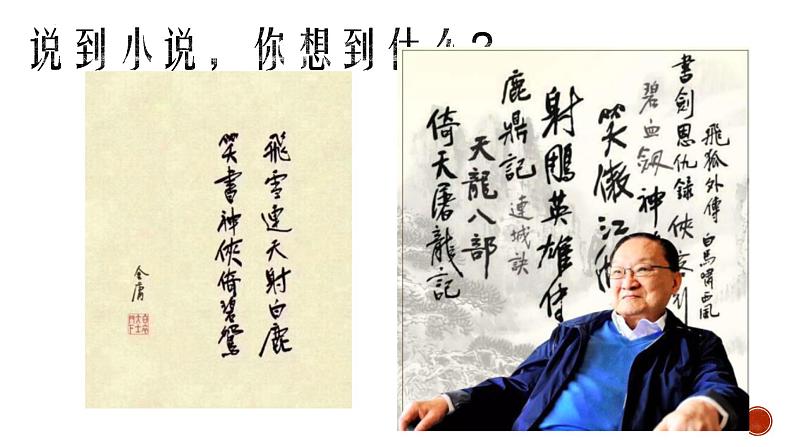 说到小说，你想到什么？
飛雪連天射白鹿
笑書神俠倚碧鴛
金庸
飛狐外傳
白馬嘯西風
書劍恩仇錄
碧血劍
神
笑傲江
射鵰英雄傳
鹿鼎記
連城訣
天龍八部
倚天屠龍記